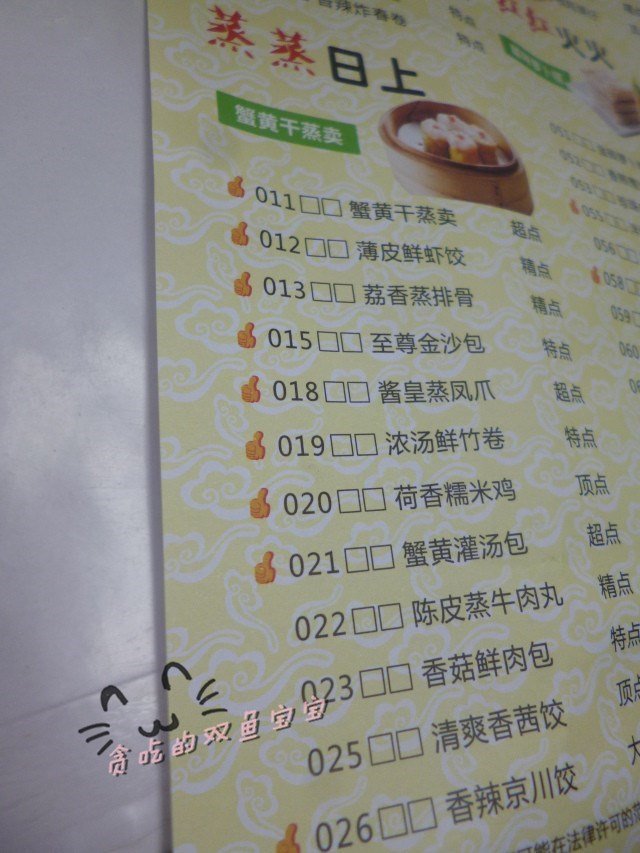 香辣炸春卷 特点
特点
蒸蒸日上
蟹黄干蒸卖
011□□ 蟹黄干蒸卖 超点
012□□ 薄皮鲜虾饺 精点
013□□ 荔香蒸排骨 精点
015□□ 至尊金沙包 特点
018□□ 酱皇蒸凤爪 超点
019□□ 浓汤鲜竹卷 特点
020□□ 荷香糯米鸡 顶点
021□□ 蟹黄灌汤包 超点
022□□ 陈皮蒸牛肉丸 精点
023□□ 香菇鲜肉包 特点
025□□ 清爽香茜饺 顶点
026□□ 香辣京川饺 大
可能在法律许可的
红红火火
051
052
053
055
056
058
059
060
贪吃的双鱼宝宝